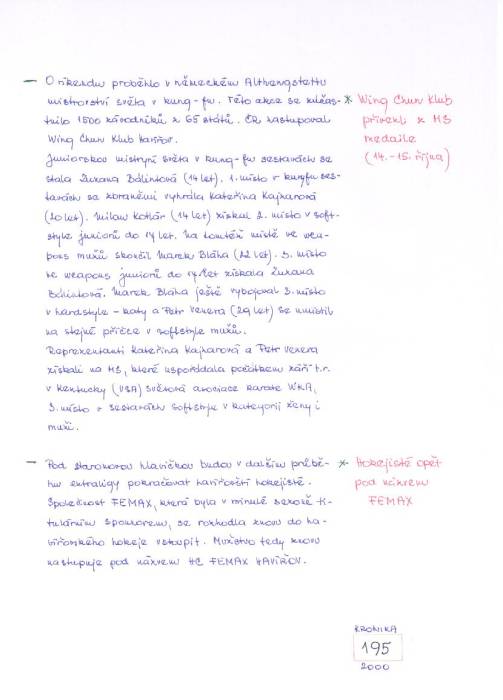 — O víkendu proběhlo v německém Althengstettu
mistrovství světa v kung-fu. Této akce se zúčast-
nilo 1500 závodníků z 65 států. ČR zastupoval
Wing Chun Klub Havířov.
Juniorskou mistryní světa v kung-fu sestavách se
stala Zuzana Bálintová (14 let). 1. místo v kungfu ses-
tavách se zbraněmi vyhrála Kateřina Kajzarová
(20 let). Milan Kotlár (14 let) získal 2. místo v soft-
style juniorů do 17 let. Na tomtéž místě ve wea-
pons mužů skončil Marek Bláha (22 let). 3. místo
ve weapons juniorů do 17 let získala Zuzana
Bálintová. Marek Bláha ještě vybojoval 3. místo
v hardstyle - katy a Petr Venera (29 let) se umístil
na stejné příčce v softstyle mužů.
Reprezentanti Kateřina Kajzarová a Petr Venera
získali na MS, které uspořádala počátkem září t.r.
v Kentucky (USA) světová asociace karate WKA,
3. místo v sestavách softstyle v kategorii ženy i
muži.
* Wing Chun Klub
přivezl z MS
medaile
(14.-15. října)
— Pod staronovou hlavičkou budou v dalším průbě-
hu extraligy pokračovat havířovští hokejisté.
Společnost FEMAX, která byla v minulé sezoně ti-
tulárním sponzorem, se rozhodla znovu do ha-
vířovského hokeje vstoupit. Mužstvo tedy znovu
nastupuje pod názvem HC FEMAX HAVÍŘOV.
* Hokejisté opět
pod názvem
FEMAX
KRONIKA
195
2000